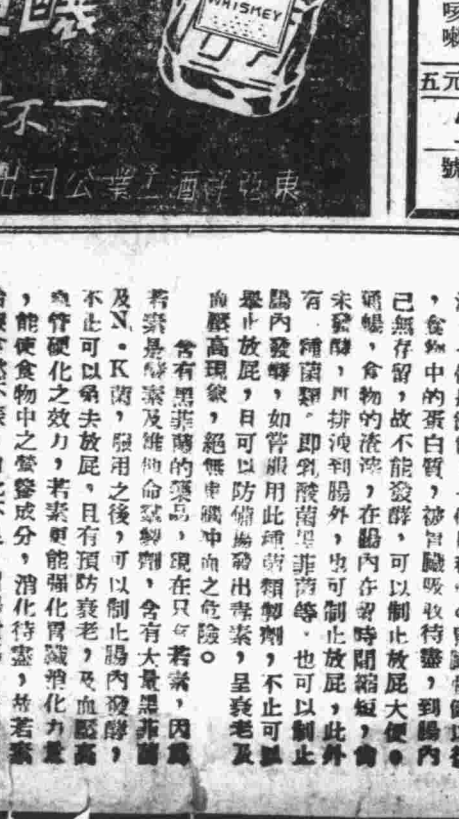 WHISKEY
不一
東亞釀酒工業公司出
五元
號
，食物中的蛋白質，被胃臟吸收待盡，到腸內
已無存留，故不能發酵，可以制止放屁大便。
通暢，食物的渣滓，在腸內存留時間縮短，尚
未發酵，即排洩到腸外，也可制止放屁，此外
有一種菌類。即乳酸菌黑菲菌等，也可以制止
腸內發酵，如常服用此種菌類製劑，不止可以
止放屁，且可以防備腸發出毒素，呈衰老及
血壓高現象，絕無冲血之危險。
含有黑菲菌的藥品，現在只有若素，因爲
若素是酵素及維他命製劑，含有大量黑菲菌
及N。K菌，服用之後，可以制止腸內發酵，
不止可以免去放屁，且有預防衰老，及血壓高
血管硬化之效力，若素更能強化胃臟消化力量
，能使食物中之營養成分，消化待盡，故若素